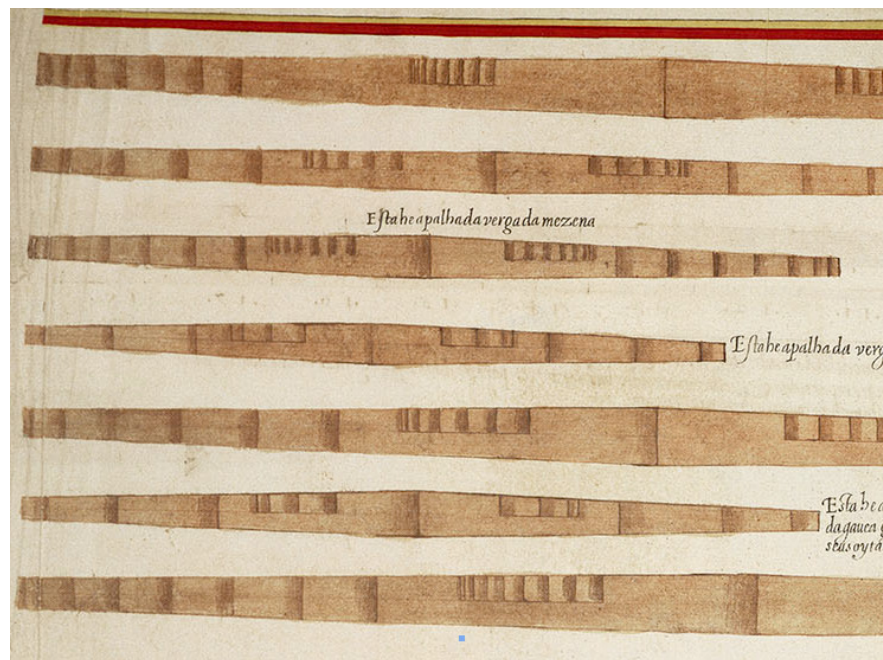 Esta he a palha da verga da mezena
Esta he a palha da verg
Esta he a
da gauea g
seus oyta